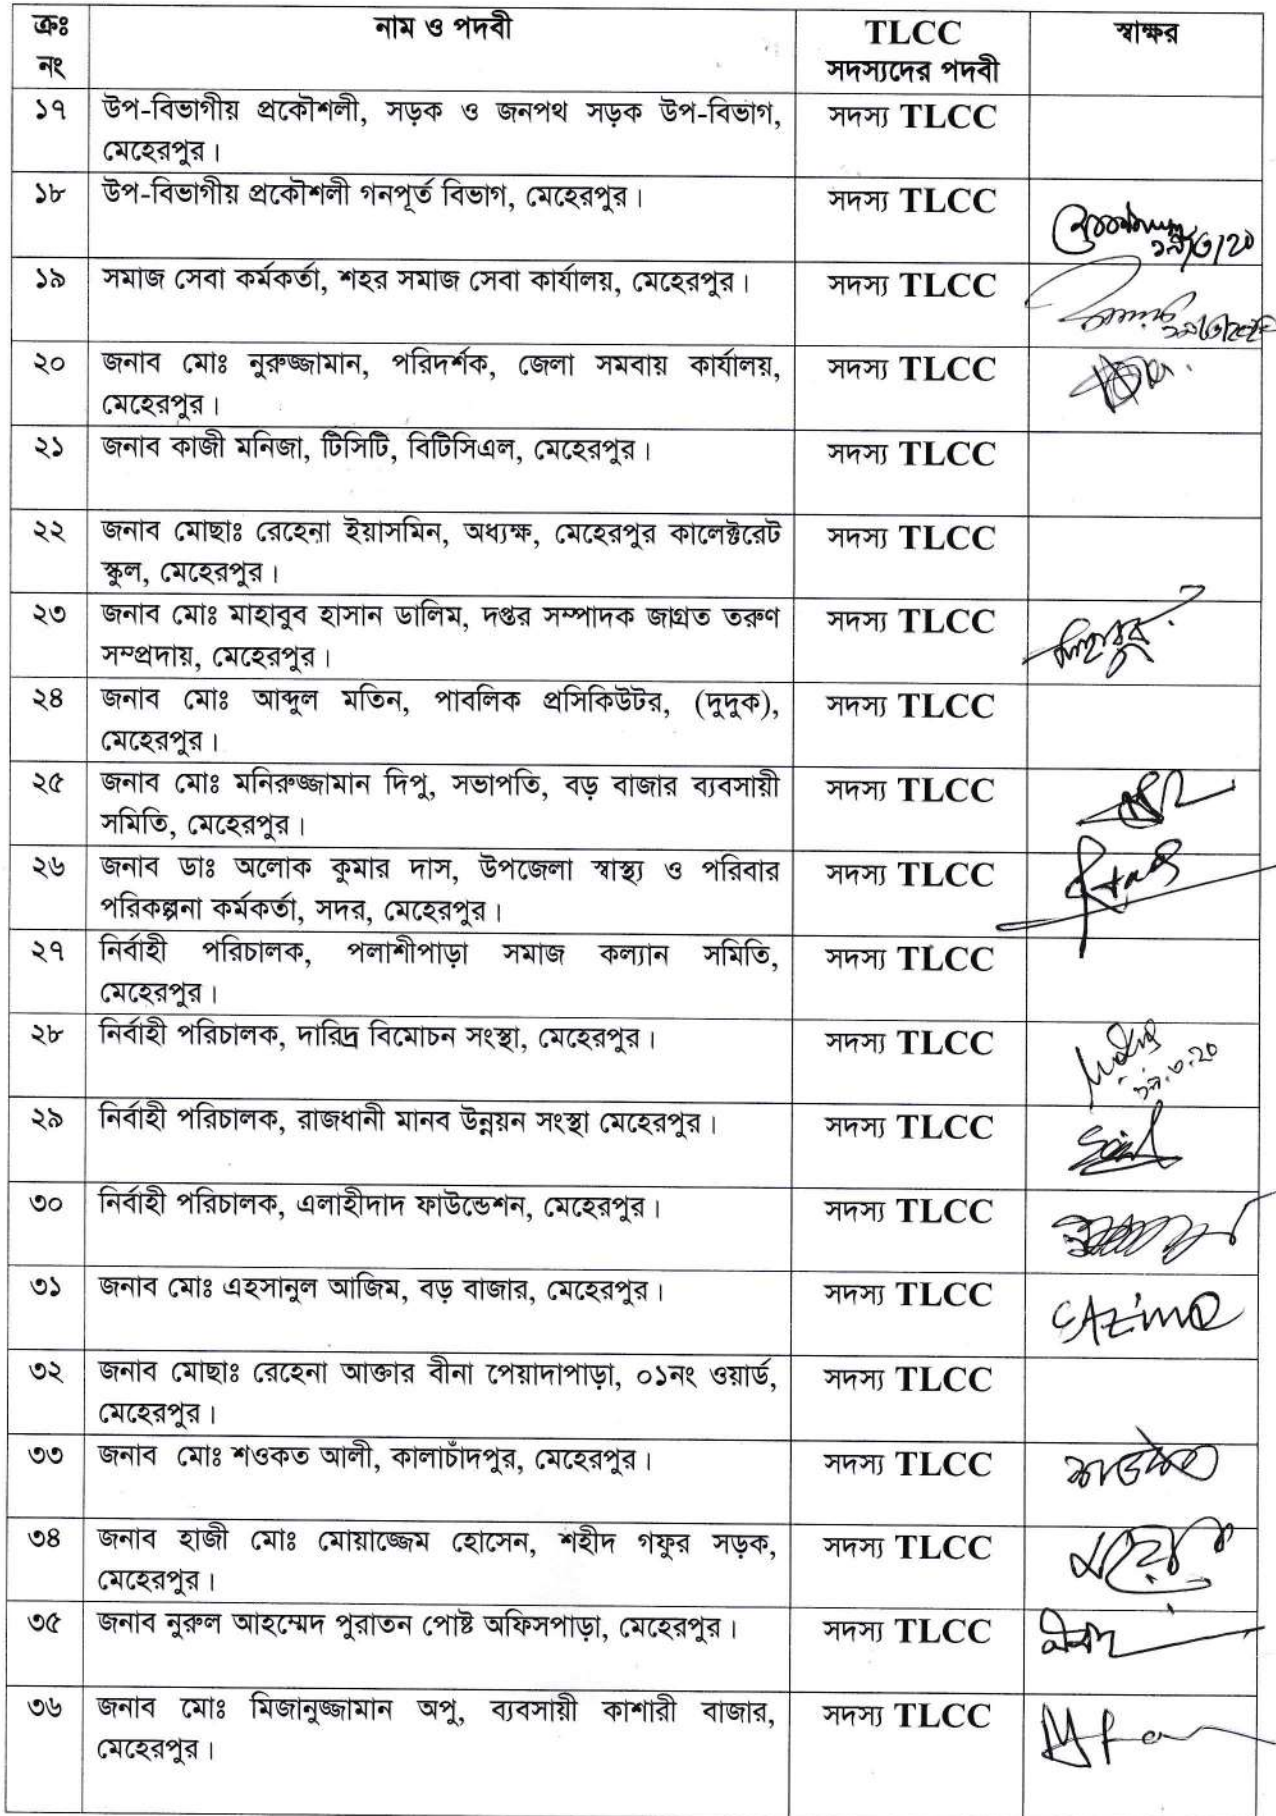 ক্রঃ নং নাম ও পদবী TLCC সদস্যদের পদবী স্বাক্ষর
১৭ উপ-বিভাগীয় প্রকৌশলী, সড়ক ও জনপথ সড়ক উপ-বিভাগ, সদস্য TLCC
মেহেরপুর।
১৮ উপ-বিভাগীয় প্রকৌশলী গনপূর্ত বিভাগ, মেহেরপুর। সদস্য TLCC
১৯ সমাজ সেবা কর্মকর্তা, শহর সমাজ সেবা কার্যালয়, মেহেরপুর। সদস্য TLCC
২০ জনাব মোঃ নুরুজ্জামান, পরিদর্শক, জেলা সমবায় কার্যালয়, সদস্য TLCC
মেহেরপুর।
২১ জনাব কাজী মনিজা, টিসিটি, বিটিসিএল, মেহেরপুর। সদস্য TLCC
২২ জনাব মোছাঃ রেহেনা ইয়াসমিন, অধ্যক্ষ, মেহেরপুর কালেক্টরেট সদস্য TLCC
স্কুল, মেহেরপুর।
২৩ জনাব মোঃ মাহাবুব হাসান ডালিম, দপ্তর সম্পাদক জাগ্রত তরুণ সদস্য TLCC
সম্প্রদায়, মেহেরপুর।
২৪ জনাব মোঃ আব্দুল মতিন, পাবলিক প্রসিকিউটর, (দুদুক), সদস্য TLCC
মেহেরপুর।
২৫ জনাব মোঃ মনিরুজ্জামান দিপু, সভাপতি, বড় বাজার ব্যবসায়ী সদস্য TLCC
সমিতি, মেহেরপুর।
২৬ জনাব ডাঃ অলোক কুমার দাস, উপজেলা স্বাস্থ্য ও পরিবার সদস্য TLCC
পরিকল্পনা কর্মকর্তা, সদর, মেহেরপুর।
২৭ নির্বাহী পরিচালক, পলাশীপাড়া সমাজ কল্যান সমিতি, সদস্য TLCC
মেহেরপুর।
২৮ নির্বাহী পরিচালক, দারিদ্র বিমোচন সংস্থা, মেহেরপুর। সদস্য TLCC
২৯ নির্বাহী পরিচালক, রাজধানী মানব উন্নয়ন সংস্থা মেহেরপুর। সদস্য TLCC
৩০ নির্বাহী পরিচালক, এলাহীদাদ ফাউন্ডেশন, মেহেরপুর। সদস্য TLCC
৩১ জনাব মোঃ এহসানুল আজিম, বড় বাজার, মেহেরপুর। সদস্য TLCC
৩২ জনাব মোছাঃ রেহেনা আক্তার বীনা পেয়াদাপাড়া, ০১নং ওয়ার্ড, সদস্য TLCC
মেহেরপুর।
৩৩ জনাব মোঃ শওকত আলী, কালাচাঁদপুর, মেহেরপুর। সদস্য TLCC
৩৪ জনাব হাজী মোঃ মোয়াজ্জেম হোসেন, শহীদ গফুর সড়ক, সদস্য TLCC
মেহেরপুর।
৩৫ জনাব নুরুল আহম্মেদ পুরাতন পোষ্ট অফিসপাড়া, মেহেরপুর। সদস্য TLCC
৩৬ জনাব মোঃ মিজানুজ্জামান অপু, ব্যবসায়ী কাশারী বাজার, সদস্য TLCC
মেহেরপুর।